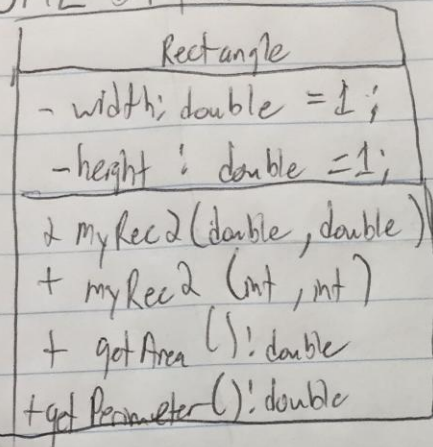 Rectangle
- width: double = 1;
- height : double = 1;
+ myRec2(double, double)
+ myRec2 (int, int)
+ getArea (): double
+ get Perimeter(): double